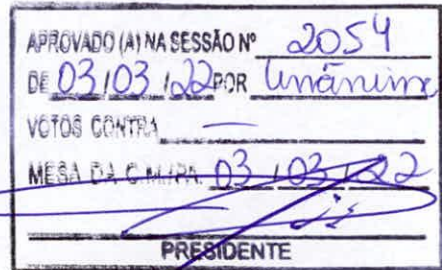 APROVADO (A) NA SESSÃO Nº 2054
DE 03/03/22 POR Unânime
VOTOS CONTRA —
MESA DA C.M./PA 03/03/22
PRESIDENTE